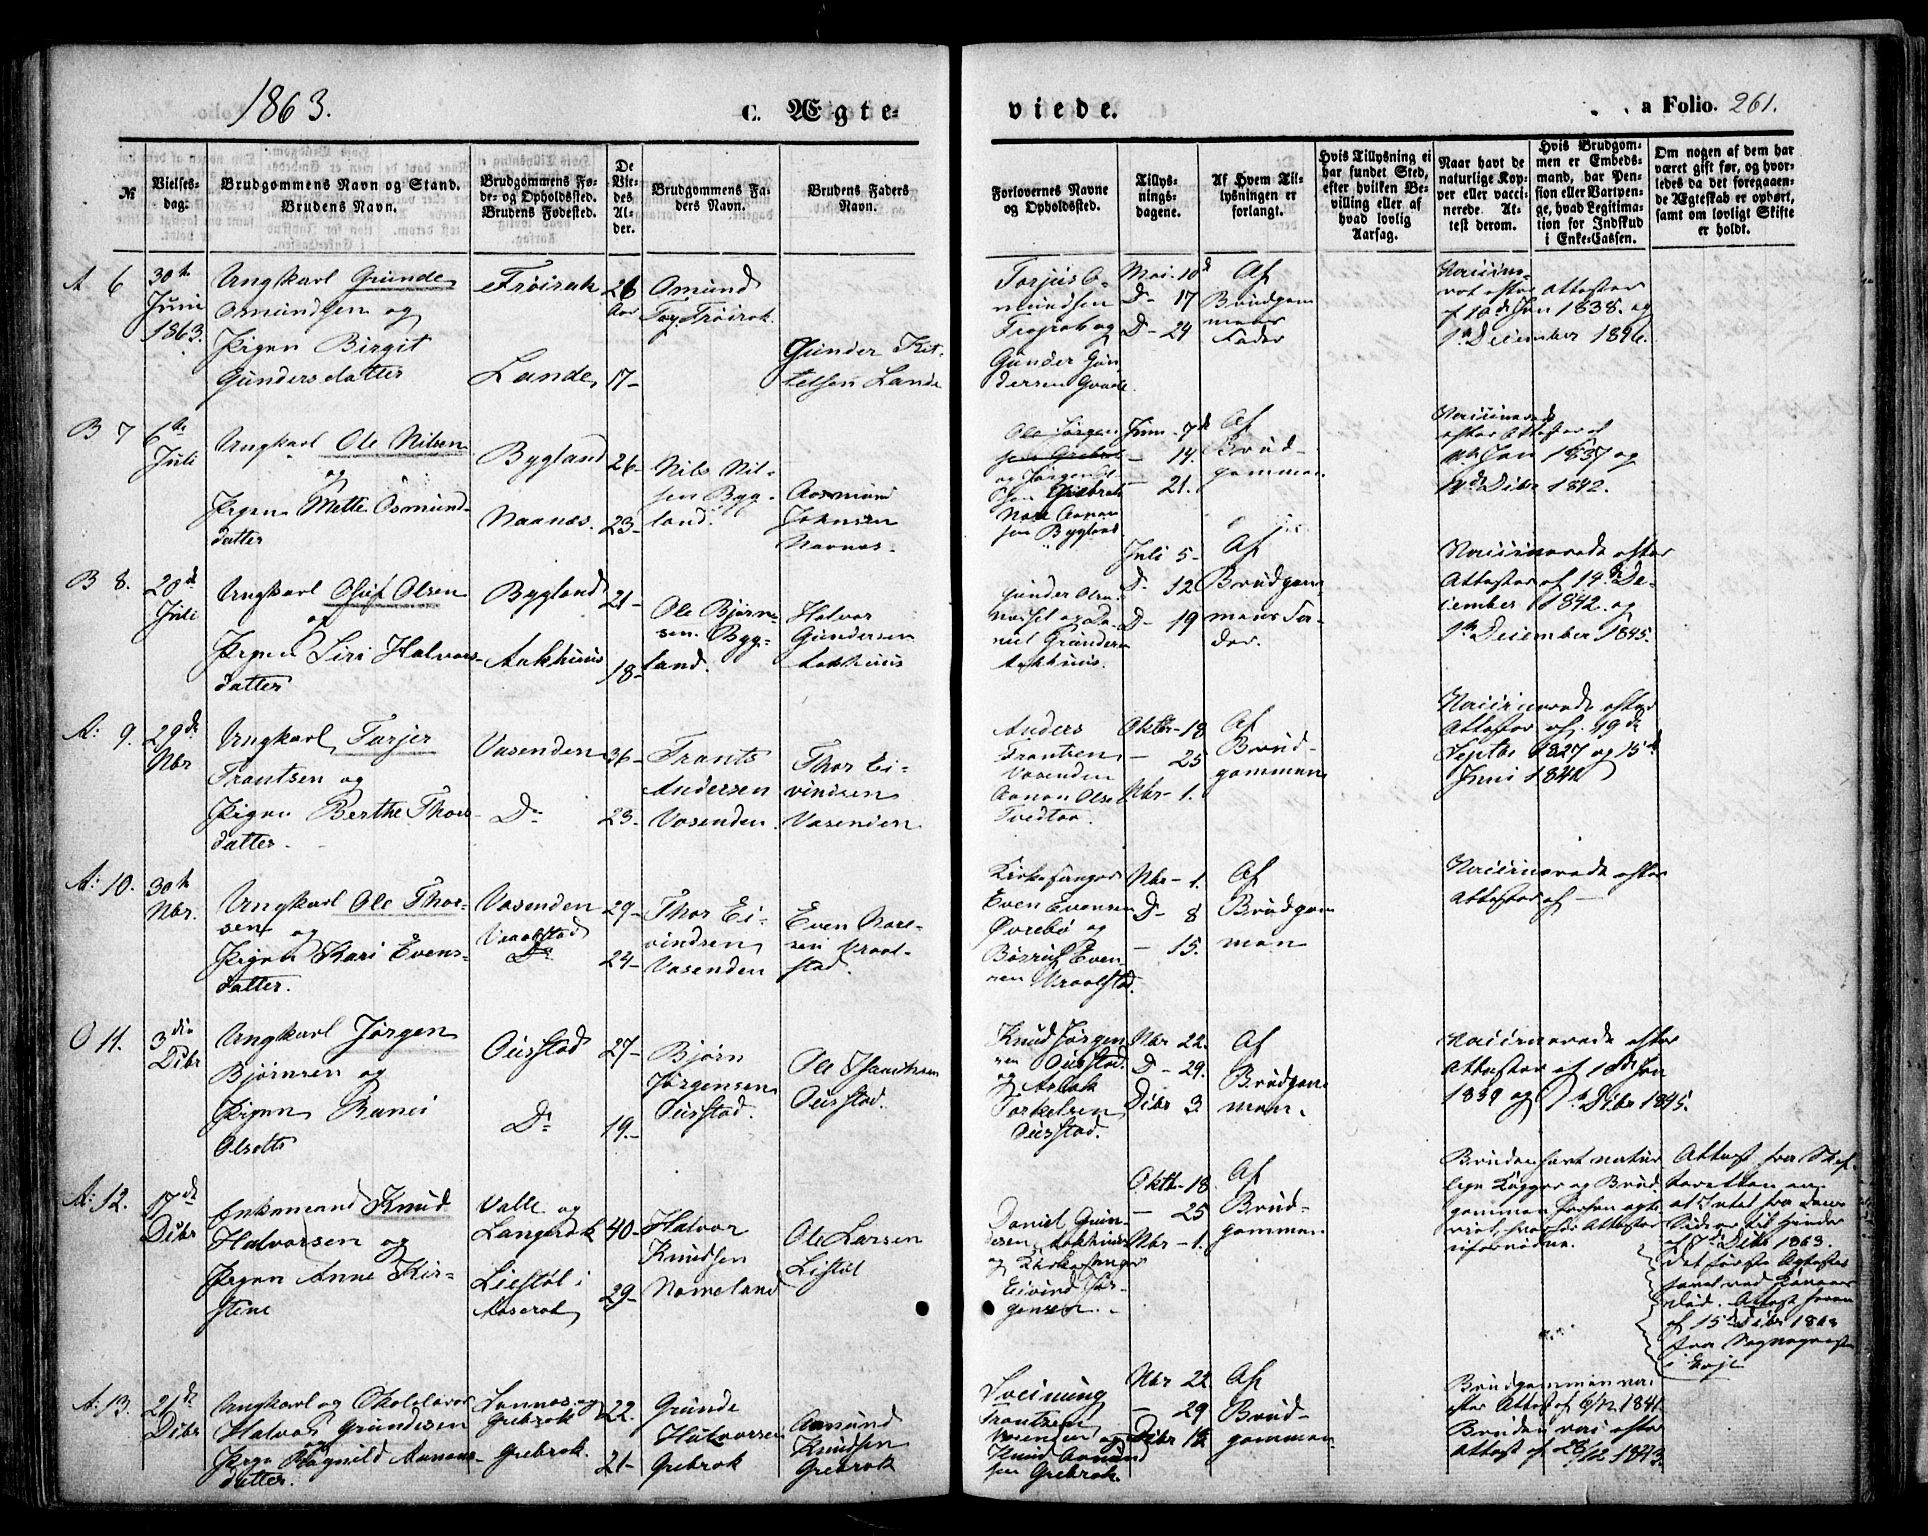 1863.
C. Ægte-
viede.
a Folio. 261.
№
Vielses-
dag:
Brudgommens Navn og Stand.
Brudens Navn.
Brudgommens Fø-
de- og Opholdssted.
Brudens Fødested.
De
Vie-
des
Al-
der.
Brudgommens Fa-
ders Navn.
Brudens Faders
Navn.
Forlovernes Navne
og Opholdssted.
Tillys-
nings-
dagene.
Af Hvem Til-
lysningen er
forlangt.
Hvis Tillysning ei
har fundet Sted,
efter hvilken Be-
villing eller af
hvad lovlig
Aarsag.
Naar havt de
naturlige Kop-
per eller vacci-
nerede. At-
test derom.
Hvis Brudgom-
men er Embeds-
mand, har Pen-
sion eller Vartpen-
ge, hvad Legitima-
tion for Indskud
i Enke-Cassen.
Om nogen af dem har
været gift før, og hvor-
ledes da det foregaaen-
de Ægteskab er ophørt,
samt om lovligt Skifte
er holdt.
A 6
30te
Juni
1863.
Ungkarl Gunde
Osmundsen og
Pigen Birgit
Gundersdatter
Frøirak
Lande,
26
Aar
17-
Osmund
Tog. Frøirak.
Gunder Kit-
telsen Lande
Torjus O-
mundsen
Frøirak og
Gunder Gun-
dersen
Mai. 10d
D- 17
D- 24
Af
Brudgom-
mens
Fader
Vaccine-
ret efter Attester
af 10de Jan 1838. og
1te December 1846.
B 7
6te
Juli
Ungkarl Ole Nilsen
og
Pigen Mette Osmund-
datter
Bygland
Naanes.
26-
23-
Nils Nil-
sen Byg-
land.
Aasmund
Johnsen
Naanes-
Ole Jørgen-
sen Grebrok
og Jørgen
sen Grebrok
Aanon-
sen Bygland
Juni- 7d
- 14.
- 21.
Af
Brud-
gommen
Vaccinerede
efter Attester af
Jan 1837 og
Dcbr 1842.
B 8.
20d
Juli
Ungkarl Oluf Olsen
og
Pigen Siri Halvors-
datter
Bygland
Aakhuus
21-
18-
Ole Bjørn-
sen Byg-
land.
Halvor
Gundersen
Aakhuus
Gunder Olsen
og Da-
niel Gunders
Aakhuus.
Juli 5-
D- 12
D- 19
Af
Brudgom-
mens Fa-
der.
Vaccinerede efter
Attester af 14de De-
cember 1842. og
1te December 1845.
A: 9.
29de
Nbr
Ungkarl Tarjer
Frantsen og
Pigen Berthe Thors-
datter.
Vasenden
Do
36-
23-
Frants
Andersen
Vasenden.
Thor Ei-
vindsen
Vasenden
Anders
Frantsen
Vasenden
Aanon Olse
Tvedten
Oktbr- 18
- 25
Nbr- 1.
Af
Brud-
gommen
Vaccinerede efter
Attester af: 19de
Septbr 1827 og 15de
Juni 1842
A: 10.
30te
Nbr.
Ungkarl Ole Thor-
sen og
Pigen Kari Evens-
datter.
Vasenden
Vraalstad
Do
29-
24-
Thor Ei-
vindsen
Vasenden
Even Aare-
sen Vraal-
stad.
Kirkesanger
Even Evensen
Øvrebø og
Børruf Even-
sen Vraalstad.
Nbr- 1.
D- 8
- 15.
Af
Brudgom
men
Vaccinerede efter
Attester af -
O 11.
3die
Dcbr
Ungkarl Jørgen
Bjørnsen og
Pigen Ranei
Olsdtr
Ousstad
Do
27-
19.-
Bjørn
Jørgensen
Ousstad.
Ole
Ousstad.
Knud Jørgen-
sen Ousstad.
og Aslak
Torkelsen
Ousstad.
Nbr 22.
D- 29.
Dcbr 3.
Af
Brudgom
men.
Vaccinerede efter
Attester af 18de Jan
1839 og 1te Dcbr 1845.
A: 12.
17de
Dcbr
Enkemand Knud
Halvorsen og
Pigen Anne Kir-
stine
Valle og
Langerak
Liestøl i
Aaserat
40-
29-
Halvor
Knudsen
Nomeland
Ole Larsen
Listøl
Daniel Gun-
dersen Aakhuus
og Kirkesanger
Eivind Jør-
gensen.
Oktb- 18.
- 25
Nbr- 1.
Af
Brud-
gommen
Bruden havt natur-
lige Kopper og Brud-
gommen
Attester
Attest fra Skif-
teretten
at Intet fra dens
Side er til Hinder
af 7de Dcbr 1863.
det første Ægteska-
Død. Attest herom
af 15de Dcbr 1863
fra Sognepresten
i Evje
A: 13.
21de
Dcbr
Ungkarl og Skolelærer
Halvor Gundesen
Pigen Ragnild Aanons-
datter.
Sannes og
Grebrok
Grebrok.
22.
21-
Gunde
Halvorsen
Grebrok
Aanund
Knudsen
Grebrok
Sveinung
Frantsen
Vasenden og
Knud Aanund
sen Grebrok
Nbr 22
- 29
Dcbr
Af
Brud-
gommen
Brudgommen vac
efter Attest af 6/12. 1841.
Bruden vacc efter
Attest af 28/12 1843.